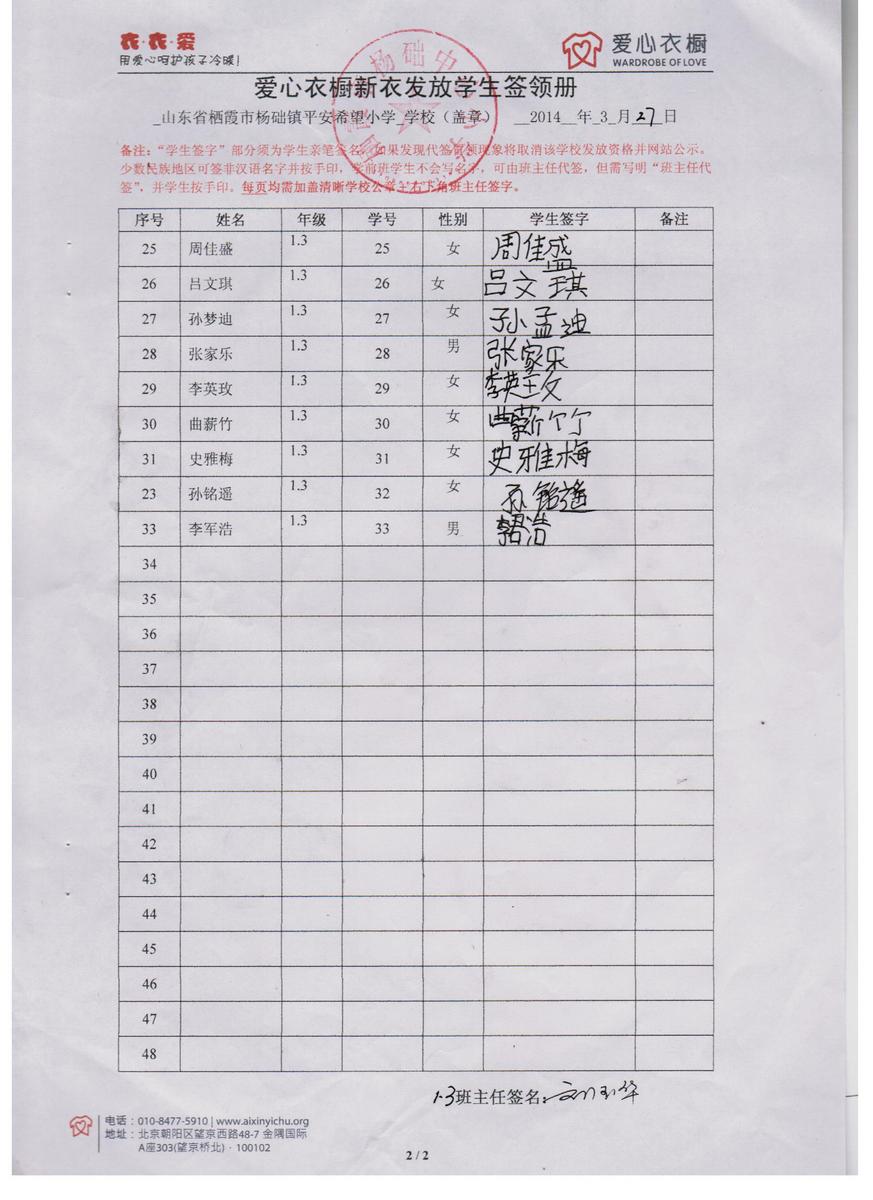 衣·衣·爱
用爱心呵护孩子冷暖!
爱心衣橱
WARDROBE OF LOVE
爱心衣橱新衣发放学生签领册
_山东省栖霞市杨础镇平安希望小学_学校（盖章） __2014__年_3_月_27_日
备注：“学生签字”部分须为学生亲笔签名，如果发现代签冒领现象将取消该学校发放资格并网站公示。
少数民族地区可签非汉语名字并按手印，学前班学生不会写名字，可由班主任代签，但需写明“班主任代
签”，并学生按手印。每页均需加盖清晰学校公章+右下角班主任签字。
序号 姓名 年级 学号 性别 学生签字 备注
25 周佳盛 1.3 25 女 周佳盛
26 吕文琪 1.3 26 女 吕文琪
27 孙梦迪 1.3 27 女 孙孟迪
28 张家乐 1.3 28 男 张家乐
29 李英玫 1.3 29 女 李英玫
30 曲薪竹 1.3 30 女 曲薪竹
31 史雅梅 1.3 31 女 史雅梅
23 孙铭遥 1.3 32 女 孙铭遥
33 李军浩 1.3 33 男 李君浩
34
35
36
37
38
39
40
41
42
43
44
45
46
47
48
1.3班主任签名：刘玉华
电话：010-8477-5910 | www.aixinyichu.org
地址：北京朝阳区望京西路48-7 金隅国际
A座303(望京桥北)·100102
2 / 2